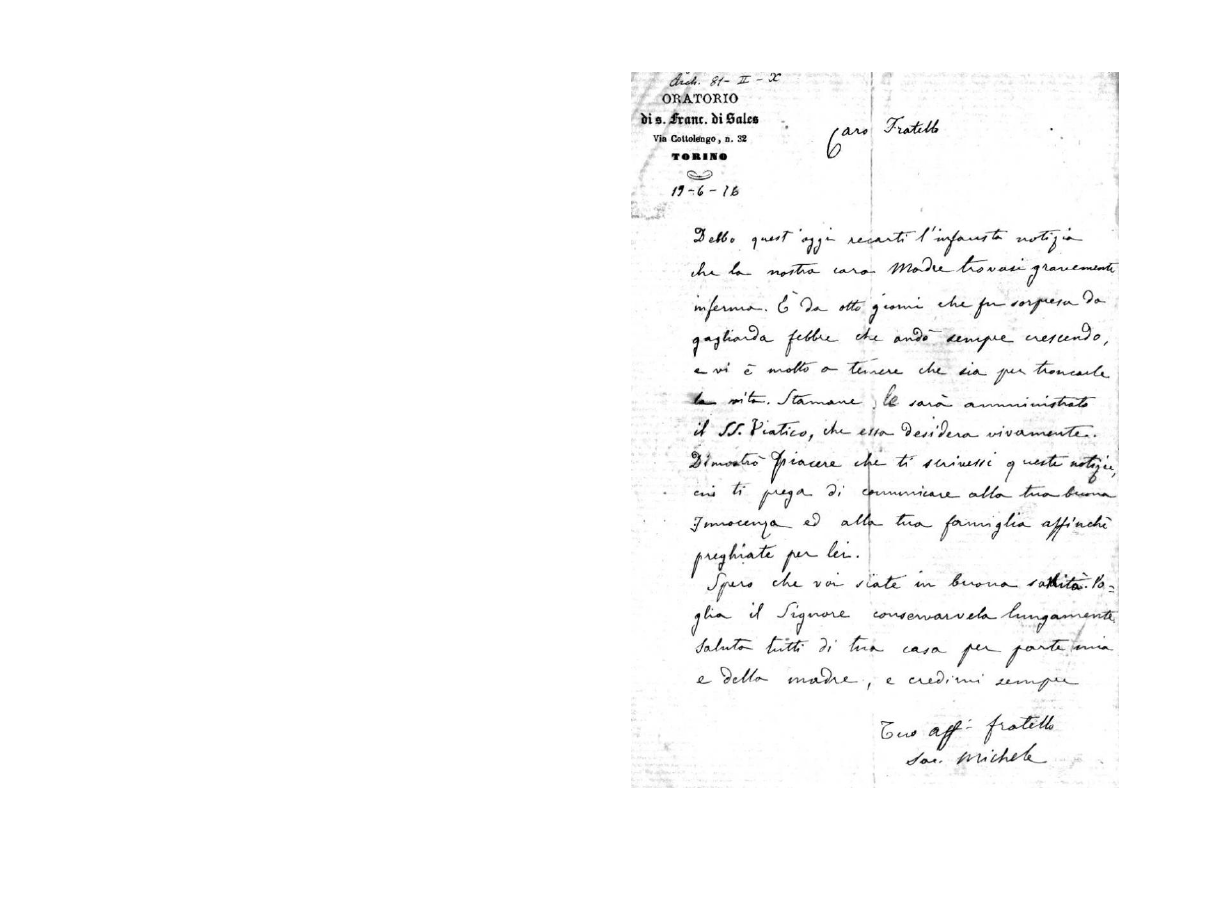 Arch. 81 - II - X
ORATORIO
di s. Franc. di Sales
Via Cottolengo, n. 32
TORINO
19-6-76
Caro Fratello
Debbo quest'oggi recarti l'infausta notizia
che la nostra cara Madre trovasi gravemente
inferma. È da otto giorni che fu sorpresa da
gagliarda febbre che andò sempre crescendo,
e vi è molto a temere che sia per troncarle
la vita. Stamane le sarà amministrato
il SS. Viatico, che essa desidera vivamente.
Dimostrò piacere che ti scrivessi queste notizie,
ti prega di comunicare alla tua buona
Innocenza ed alla tua famiglia affinchè
preghiate per lei.
Spero che voi siate in buona Vo=
glia il Signore conservarvela lungamente
Saluta tutti di tua casa per parte mia
e della madre, e credimi sempre
Tuo aff. fratello
Sac. Michele